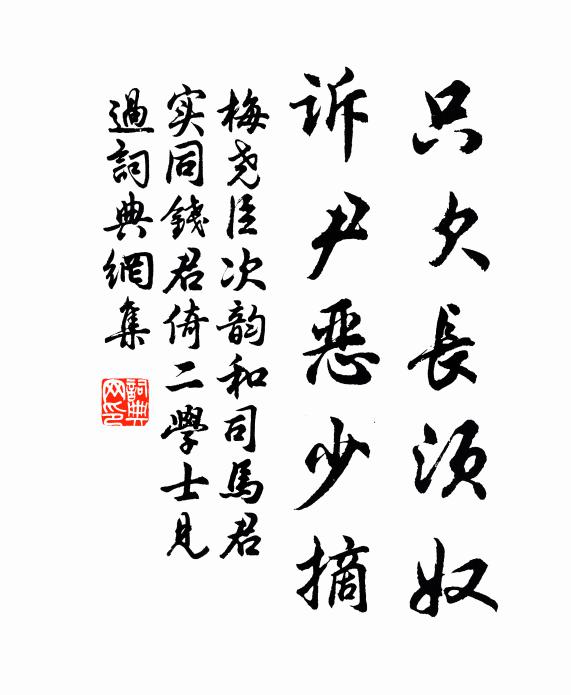 只欠長須奴
訴尹惡少摘
梅堯臣次韵和司馬君
实同錢君倚二學士見
過詞典網集
詞典网印